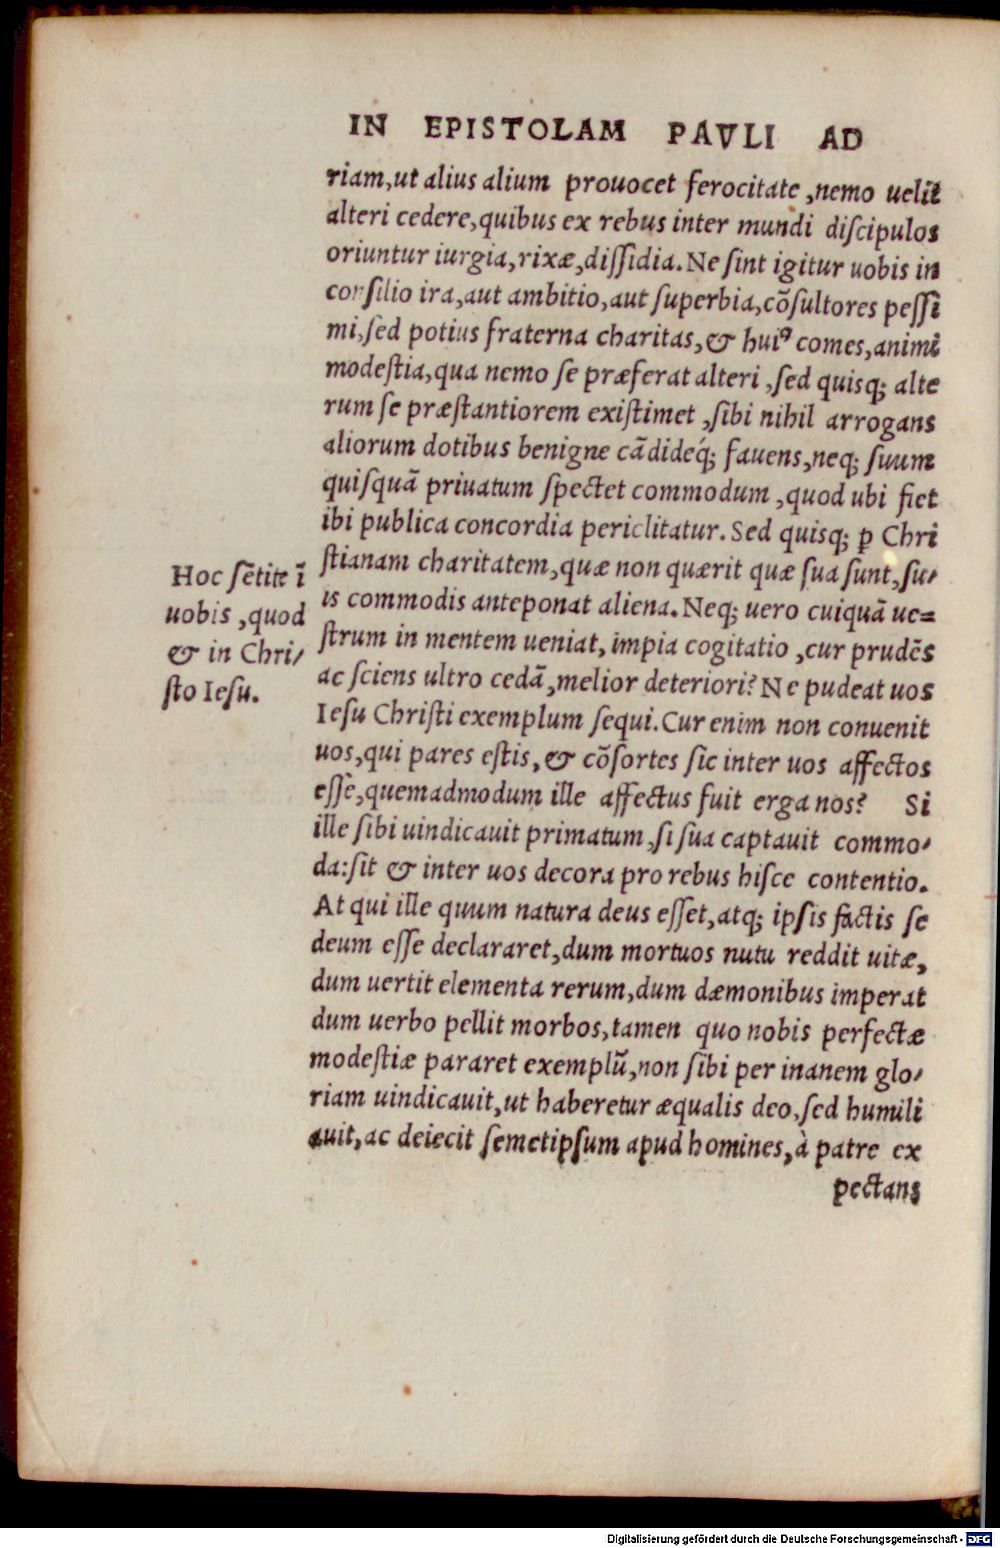 IN EPISTOLAM PAVLI AD
riam,ut alius alium prouocet ferocitate,nemo uelit
alteri cedere,quibus ex rebus inter mundi diſcipulos
oriuntur iurgia,rixæ,diſſidia.Ne ſint igitur uobis in
conſilio ira,aut ambitio,aut ſuperbia,cõſultores peſſi
mi,ſed potius fraterna charitas,& huiꝰ comes,animi
modeſtia,qua nemo ſe præferat alteri,ſed quisq; alte
rum ſe præſtantiorem exiſtimet,ſibi nihil arrogans
aliorum dotibus benigne cãdideq́; fauens,neq; ſuum
quiſquã priuatum ſpectet commodum,quod ubi fiet
ibi publica concordia periclitatur.Sed quisq; ꝑ Chri
ſtianam charitatem,quæ non quærit quæ ſua ſunt,ſu/
is commodis anteponat aliena.Neq; uero cuiquã ue=
ſtrum in mentem ueniat,impia cogitatio,cur prudẽs
ac ſciens ultro cedã,melior deteriori?Ne pudeat uos
Ieſu Chriſti exemplum ſequi.Cur enim non conuenit
uos,qui pares eſtis,& cõſortes ſic inter uos affectos
eſſe,quemadmodum ille affectus fuit erga nos? Si
ille ſibi uindicauit primatum,ſi ſua captauit commo/
da:ſit & inter uos decora pro rebus hiſce contentio.
At qui ille quum natura deus eſſet,atq; ipſis factis ſe
deum eſſe declararet,dum mortuos nutu reddit uitæ,
dum uertit elementa rerum,dum dæmonibus imperat
dum uerbo pellit morbos,tamen quo nobis perfectæ
modeſtiæ pararet exemplũ,non ſibi per inanem glo/
riam uindicauit,ut haberetur æqualis deo,ſed humili
auit,ac deiecit ſemetipſum apud homines,à patre ex
pectans
Hoc ſẽtite ĩ
uobis,quod
& in Chri/
ſto Ieſu.
Digitalisierung gefördert durch die Deutsche Forschungsgemeinschaft - DFG